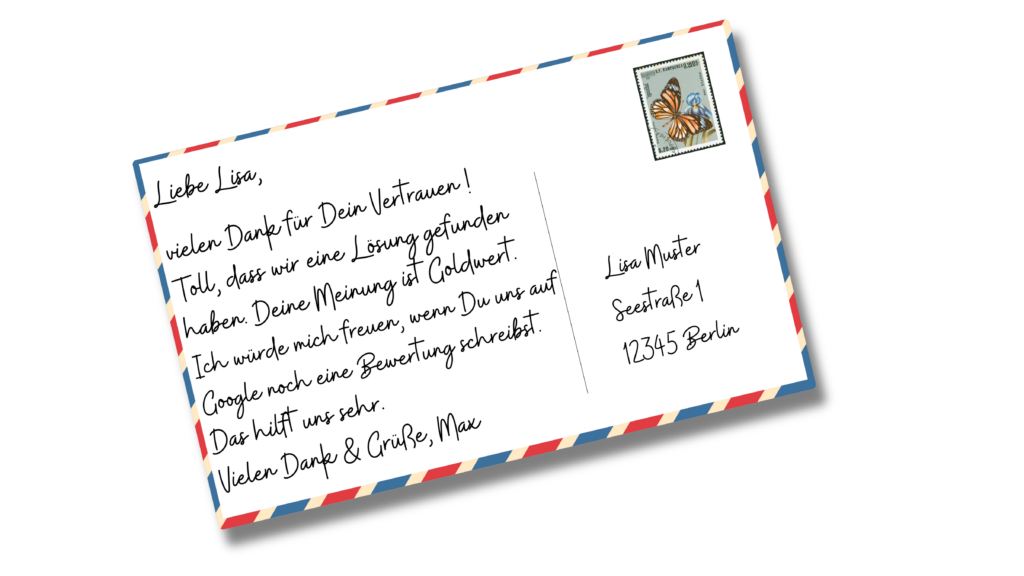 Liebe Lisa,
vielen Dank für Dein Vertrauen!
Toll, dass wir eine Lösung gefunden
haben. Deine Meinung ist Goldwert.
Ich würde mich freuen, wenn Du uns auf
Google noch eine Bewertung schreibst.
Das hilft uns sehr.
Vielen Dank & Grüße, Max
Lisa Muster
Seestraße 1
12345 Berlin